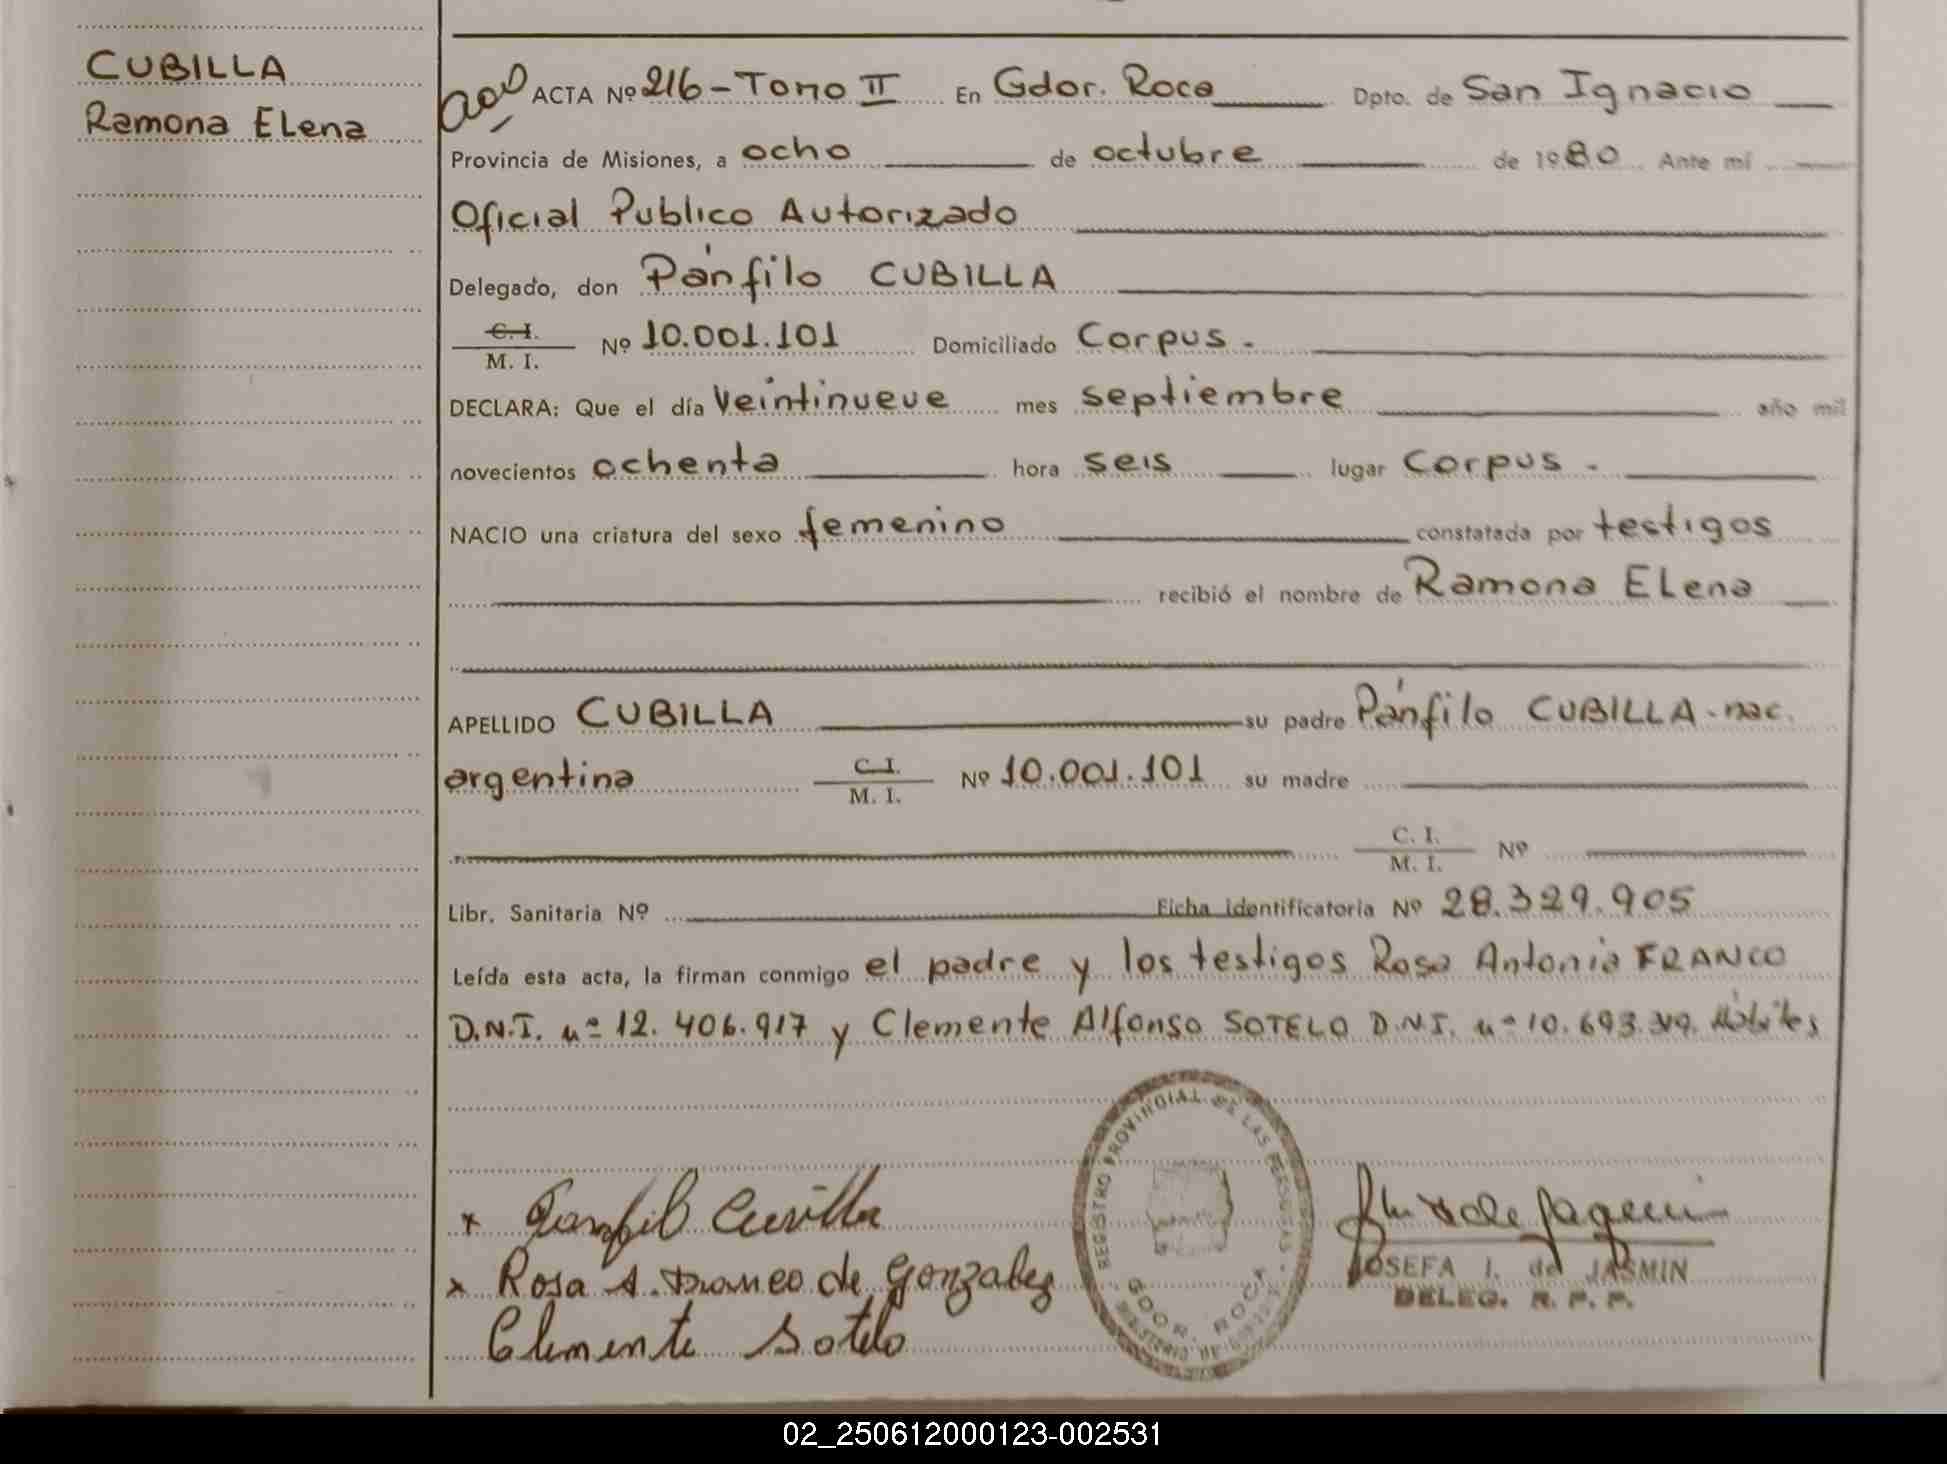 CUBILLA
Ramona Elena
ACTA Nº 216 - Tomo II En Gdor. Roca Dpto. de San Ignacio
Provincia de Misiones, a ocho de octubre de 1980 Ante mí
Oficial Publico Autorizado
Delegado, don Pánfilo CUBILLA
C. I.
M. I. Nº 10.001.101 Domiciliado Corpus.
DECLARA: Que el día veintinueve mes septiembre año mil
novecientos ochenta hora seis lugar Corpus.
NACIO una criatura del sexo femenino constatada por testigos
recibió el nombre de Ramona Elena
APELLIDO CUBILLA su padre Pánfilo CUBILLA - nac.
argentina C. I. M. I. Nº 10.001.101 su madre
C. I. M. I. Nº
Libr. Sanitaria Nº Ficha identificatoria Nº 28.329.905
Leída esta acta, la firman conmigo el padre y los testigos Rosa Antonia FRANCO
D.N.I. nº 12.406.917 y Clemente Alfonso SOTELO D.N.I. nº 10.693.319. Hábiles
REGISTRO PROVINCIAL DE LAS PERSONAS
GDOR. ROCA
Rosa A. Franco de Gonzalez
Clemente Sotelo
JOSEFA I. de JASMIN
DELEG. R. P. P.
02_250612000123-002531